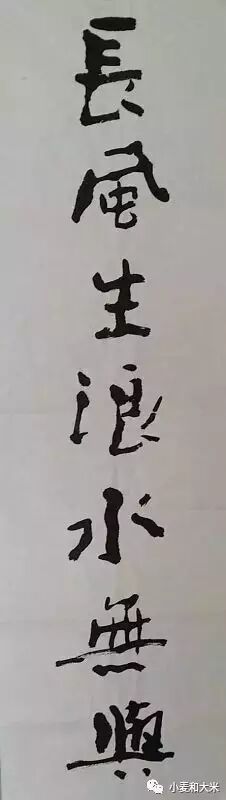 長風生浪水無與
小麦和大米